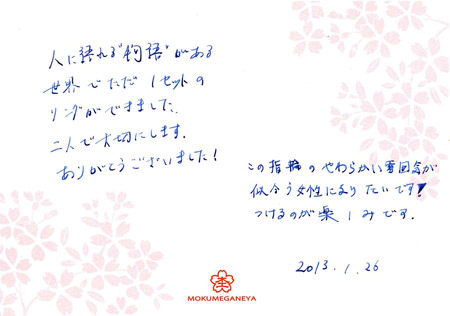 人に語れる"物語"がある
世界でただ1セットの
リングができました.
二人で大切にします.
ありがとうございました!
この指輪のやわらかい雰囲気が
似合う女性になりたいです!
つけるのが楽しみです.
2013.1.26
MOKUMEGANEYA